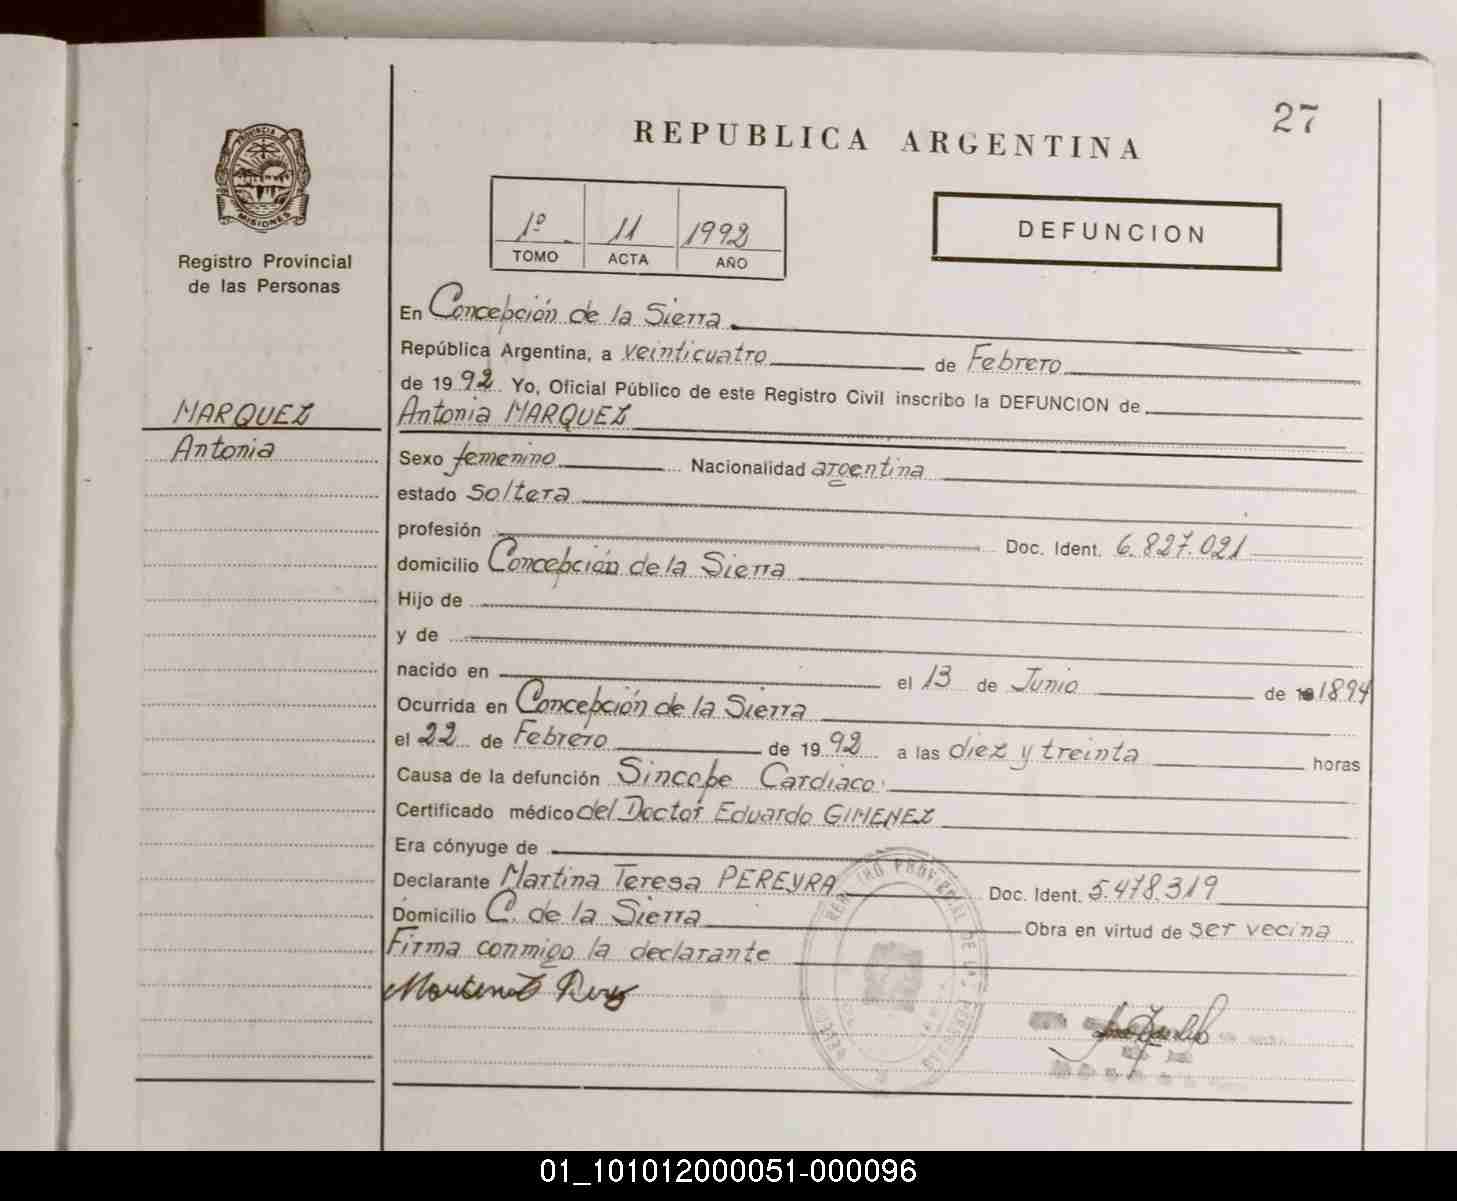 27
REPUBLICA ARGENTINA
PROVINCIA DE
MISIONES
Registro Provincial
de las Personas
1º 11 1992
TOMO ACTA AÑO
DEFUNCION
En Concepción de la Sierra
República Argentina, a veinticuatro de Febrero
de 1992 Yo, Oficial Público de este Registro Civil inscribo la DEFUNCION de
MARQUEZ
Antonia MARQUEZ
Antonia
Sexo femenino Nacionalidad argentina
estado soltera
profesión Doc. Ident. 6.827.021
domicilio Concepción de la Sierra
Hijo de
y de
nacido en el 13 de Junio de 1894
Ocurrida en Concepción de la Sierra
el 22 de Febrero de 1992 a las diez y treinta horas
Causa de la defunción Sincope Cardiaco
Certificado médico del Doctor Eduardo GIMENEZ
Era cónyuge de
Declarante Martina Teresa PEREYRA Doc. Ident. 5.478.319
Domicilio C. de la Sierra Obra en virtud de ser vecina
Firma conmigo la declarante
01_101012000051-000096